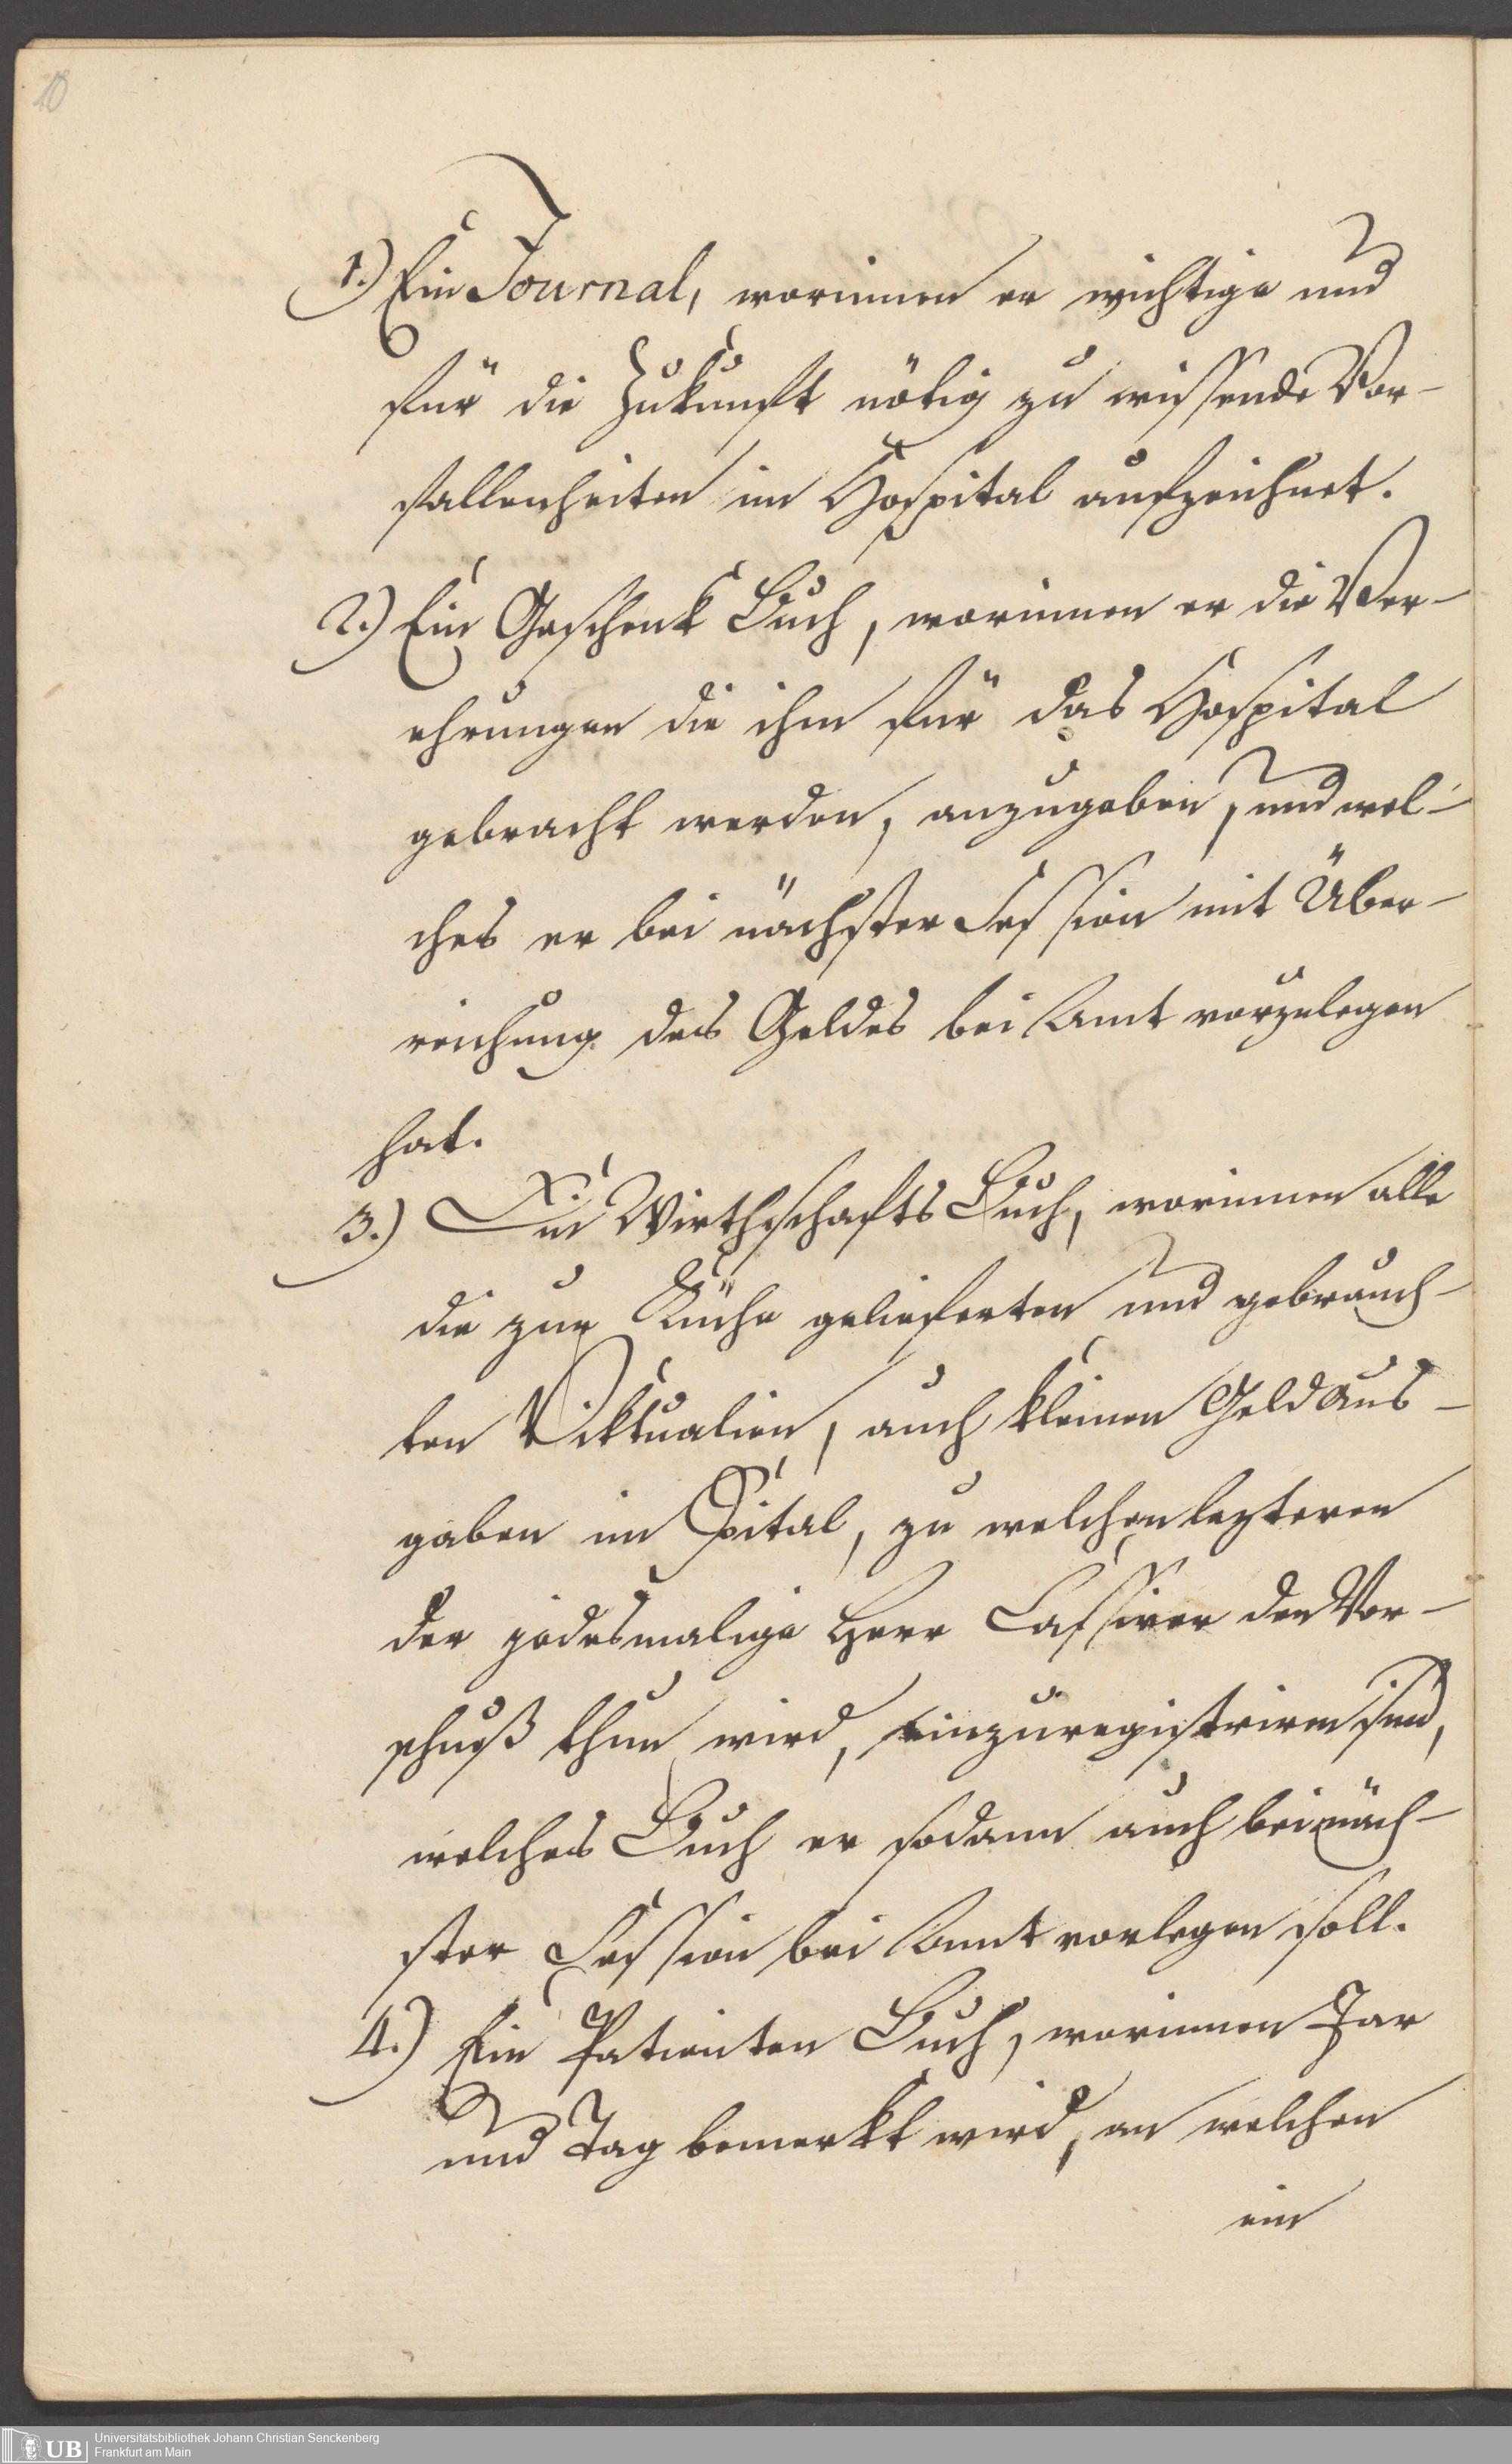 10
1.) Ein Journal, worinnen er wichtige und
für die Zukunft nötig zu wissende Vor-
fallenheiten im Hospital aufzeichnet.
2.) Ein Geschenk Buch, worinnen er die Ver-
ehrungen die ihm für das Hospital
gebracht werden, anzugeben, und wel-
ches er bei nächster Session mit Über-
reichung des Geldes bei Amt vorzulegen
hat.
3.) Ein Wirthschafts Buch, worinnen alle
die zur Küche gelieferten und gebrauch-
ten Viktualien, auch kleinen Geldaus-
gaben im Spital, zu welchen lezteren
der jedesmalige Herr Cassirer den Vor-
schuß thun wird, einzuregistriren sind,
welches Buch er sodann auch bei näch-
ster Session bei Amt vorlegen soll.
4.) Ein Patienten Buch, worinnen Jar
und Tag bemerkt wird, an welchen
ein
UB
Universitätsbibliothek Johann Christian Senckenberg
Frankfurt am Main